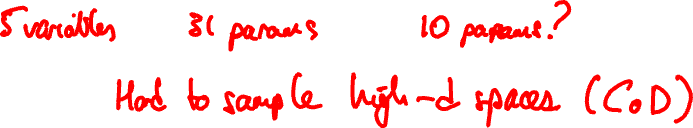 5 variables 31 params 10 params.?
Hard to sample high-d spaces (CoD)